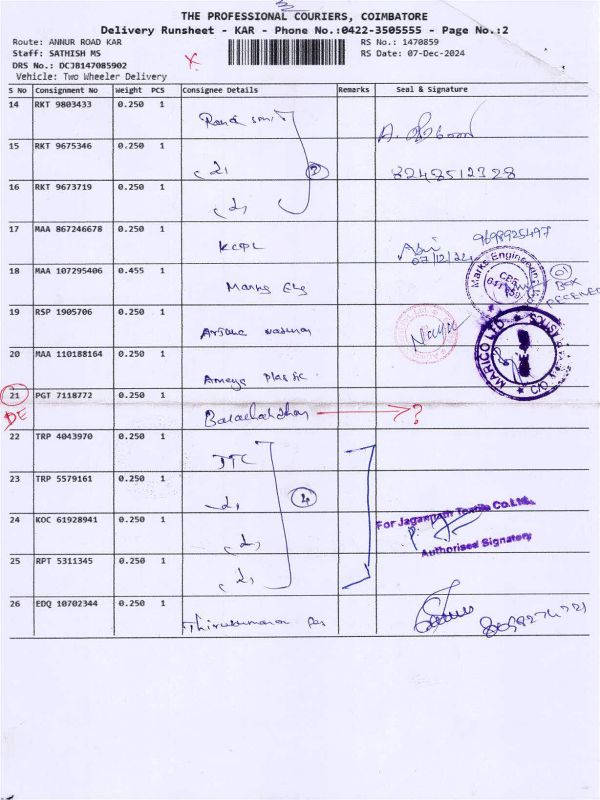 THE PROFESSIONAL COURIERS, COIMBATORE
Delivery Runsheet - KAR - Phone No.:0422-3505555 - Page No.:2
Route: ANNUR ROAD KAR
RS No.: 1470859
Staff: SATHISH MS
RS Date: 07-Dec-2024
DRS No.: DCJB147085902
Vehicle: Two Wheeler Delivery
S No Consignment No Weight PCS Consignee Details Remarks Seal & Signature
14 RKT 9803433 0.250 1
15 RKT 9675346 0.250 1
8248512328
16 RKT 9673719 0.250 1
17 MAA 867246678 0.250 1 KCPL Abi 9698925497
07/12/24
18 MAA 107295406 0.455 1 Marks Eng
Marks Engineering
01 BOX RECEIVED
19 RSP 1905706 0.250 1
MARICO LTD
20 MAA 110188164 0.250 1 Ameya Plastic
21 PGT 7118772 0.250 1 ?
DE
22 TRP 4043970 0.250 1 JTC
23 TRP 5579161 0.250 1 4
24 KOC 61928941 0.250 1
For Jagannath Textile Co.Ltd.,
Authorised Signatory
25 RPT 5311345 0.250 1
26 EDQ 10702344 0.250 1